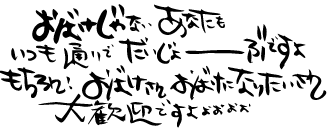 おばけじゃない あなたも
いつも通りで だいじょーぶですよ
もちろん おばけさん おばけになりたいさん
大歓迎ですよぉぉぉぉ